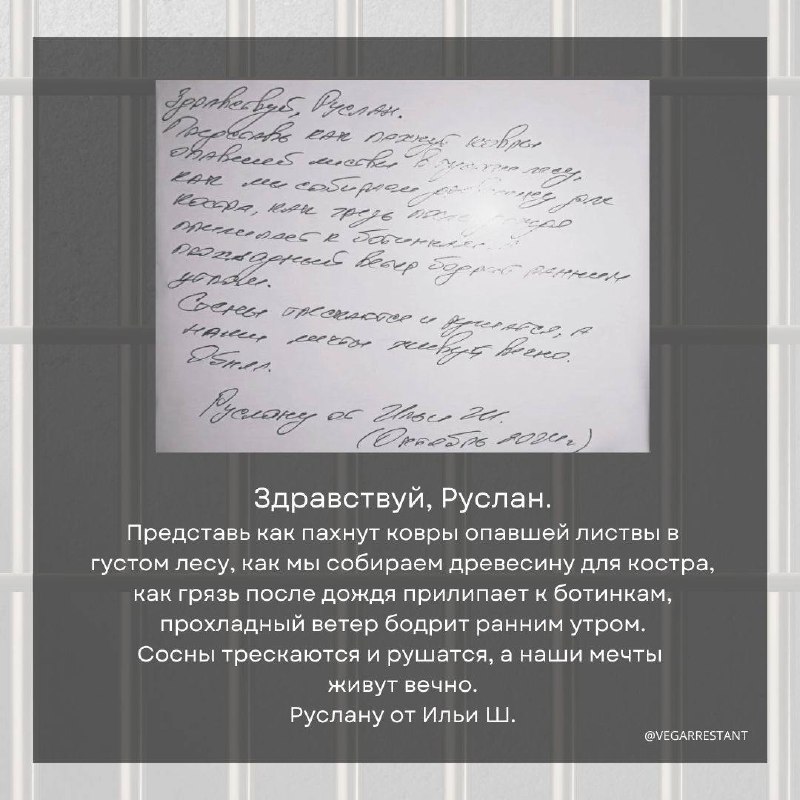 Здравствуй, Руслан.
Представь как пахнут ковры
опавшей листвы в густом лесу,
как мы собираем древесину для
костра, как грязь после дождя
прилипает к ботинкам,
прохладный ветер бодрит ранним
утром.
Сосны трескаются и рушатся, а
наши мечты живут вечно.
Обнял.
Руслану от Ильи Ш.
(Октябрь 2024г)
Здравствуй, Руслан.
Представь как пахнут ковры опавшей листвы в
густом лесу, как мы собираем древесину для костра,
как грязь после дождя прилипает к ботинкам,
прохладный ветер бодрит ранним утром.
Сосны трескаются и рушатся, а наши мечты
живут вечно.
Руслану от Ильи Ш.
@VEGARRESTANT